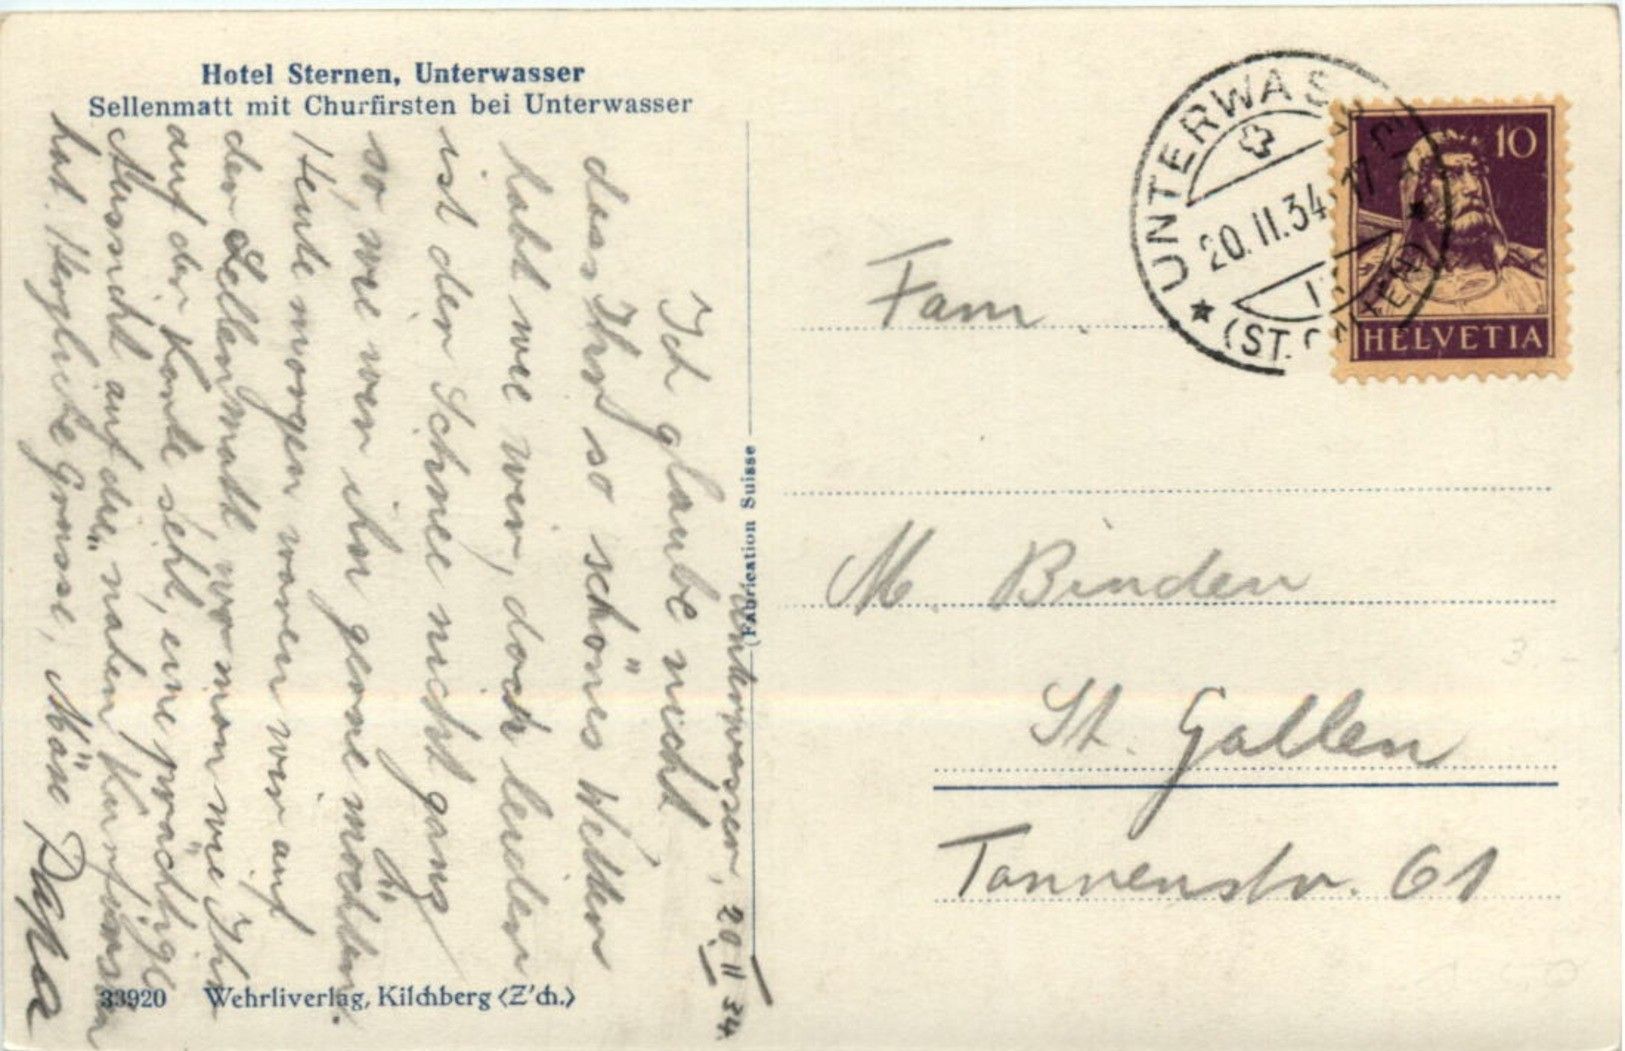 Hotel Sternen, Unterwasser
Sellenmatt mit Churfirsten bei Unterwasser
Unterwasser, 20 II 34.
Ich glaube nicht
dass Ihr so schönes Wetter
habt wie wir, doch leider
ist der Schnee nicht ganz
so, wie wir ihn gerne möchten.
Heute morgen waren wir auf
der Sellenmatt, wo man wie Ihr
auf der Karte seht, eine prächtige
Aussicht auf die nahen Kurfirsten
hat. Herzliche Grüsse, Mäxe Papa
33920 Wehrliverlag, Kilchberg (Z'ch.)
(Fabrication Suisse
UNTERWASSER
20.II.34. 17
(ST. GALLEN)
10
HELVETIA
Fam.
M. Binder
St. Gallen
Tannenstr. 61
3.-